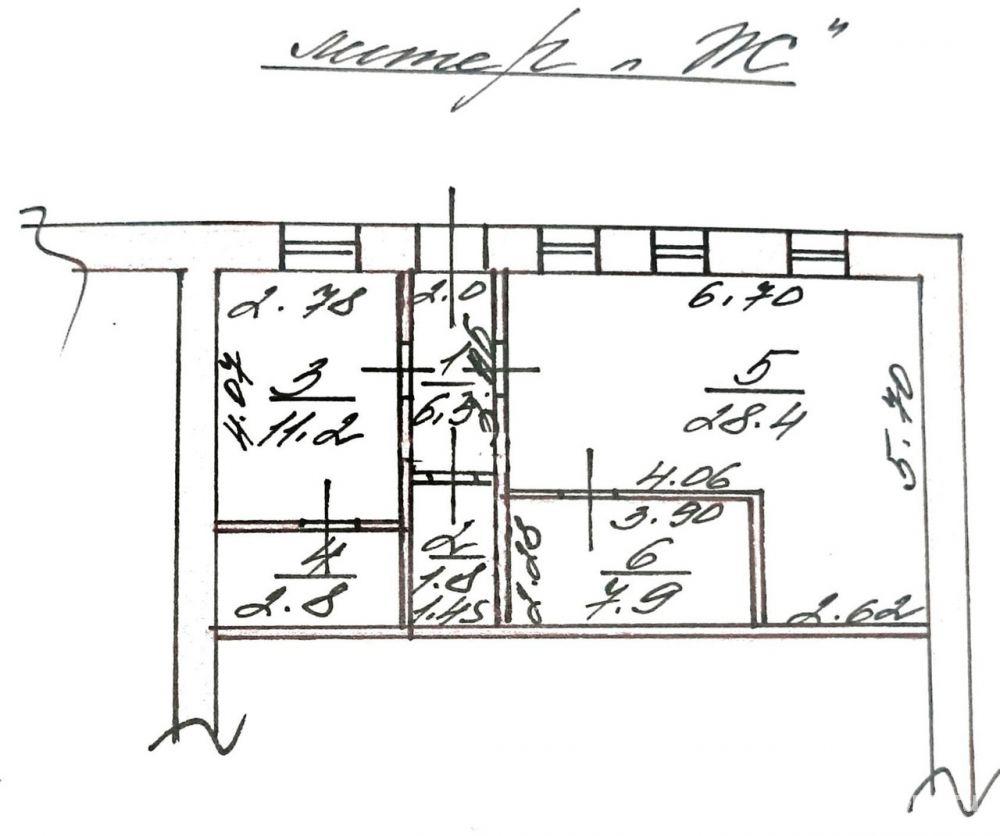 литер „Ж"
2.78
2.0
6.70
4.07
3
11.2
1
6.3
5
28.4
5.70
4.06
3.90
4
2.8
2
1.8
1.45
6
7.9
2.62